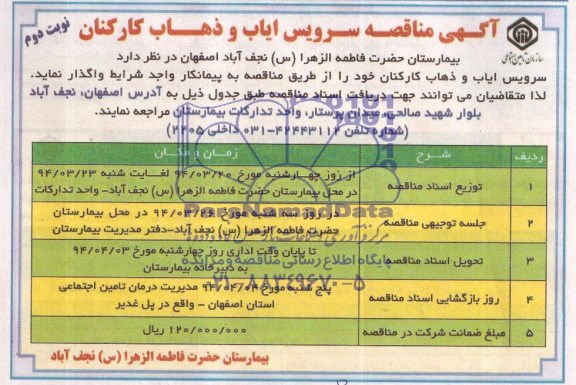 آگهی مناقصه سرویس ایاب و ذهاب کارکنان
نوبت دوم
سازمان تامین اجتماعی
بیمارستان حضرت فاطمه الزهرا (س) نجف آباد اصفهان در نظر دارد
سرویس ایاب و ذهاب کارکنان خود را از طریق مناقصه به پیمانکار واجد شرایط واگذار نماید.
لذا متقاضیان می توانند جهت دریافت اسناد مناقصه طبق جدول ذیل به آدرس اصفهان، نجف آباد
بلوار شهید صالحی، میدان پرستار، واحد تدارکات بیمارستان مراجعه نمایند.
(شماره تلفن ۴۲۴۴۳۱۱۲-۰۳۱ داخلی ۲۲۰۵)
ردیف شرح زمان و مکان
۱ توزیع اسناد مناقصه از روز چهارشنبه مورخ ۹۴/۰۳/۲۰ لغایت شنبه ۹۴/۰۳/۲۳
در محل بیمارستان حضرت فاطمه الزهرا (س) نجف آباد- واحد تدارکات
۲ جلسه توجیهی مناقصه در روز سه شنبه مورخ ۹۴/۰۳/۲۶ در محل بیمارستان
حضرت فاطمه الزهرا (س) نجف آباد-دفتر مدیریت بیمارستان
۳ تحویل اسناد مناقصه تا پایان وقت اداری روز چهارشنبه مورخ ۹۴/۰۴/۰۳
به دبیرخانه بیمارستان
۴ روز بازگشایی اسناد مناقصه پنج شنبه مورخ ۹۴/۰۴/۰۴ مدیریت درمان تامین اجتماعی
استان اصفهان - واقع در پل غدیر
۵ مبلغ ضمانت شرکت در مناقصه ۱۲۰/۰۰۰/۰۰۰ ریال
بیمارستان حضرت فاطمه الزهرا (س) نجف آباد
ParsNamadData
پایگاه اطلاع رسانی مناقصه و مزایده
۰۲۱-۸۸۳۴۹۶۷۰-۵